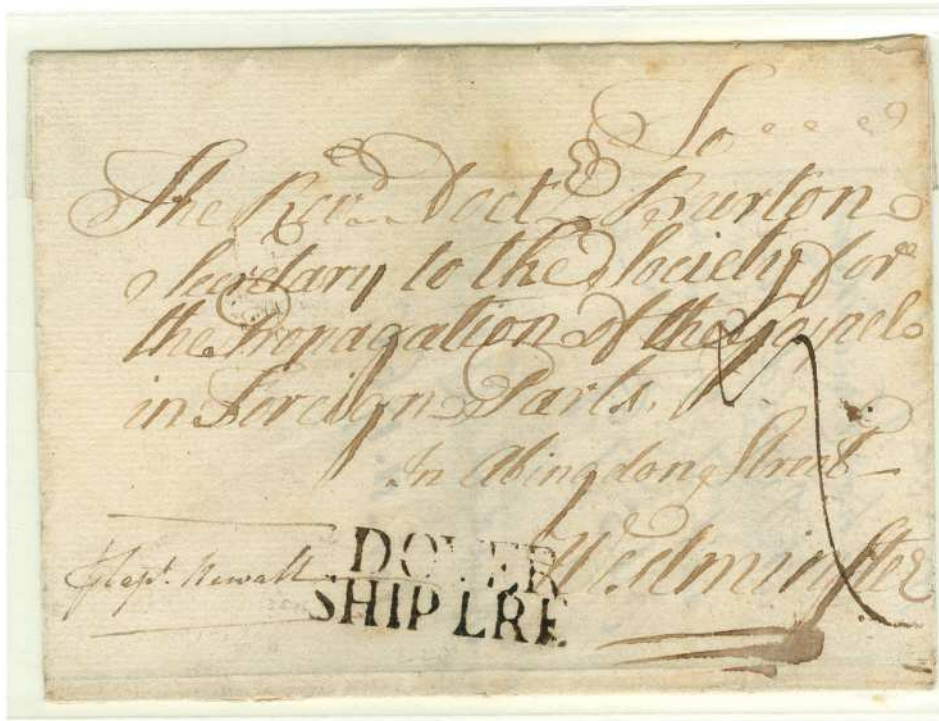 To
The Revd. Doctr. Burton
Secretary to the Society for
the Propagation of the Gospel
in Foreign Parts.
In Abingdon Street
Westminster
Capt. Newall
DOVER
SHIP LRE